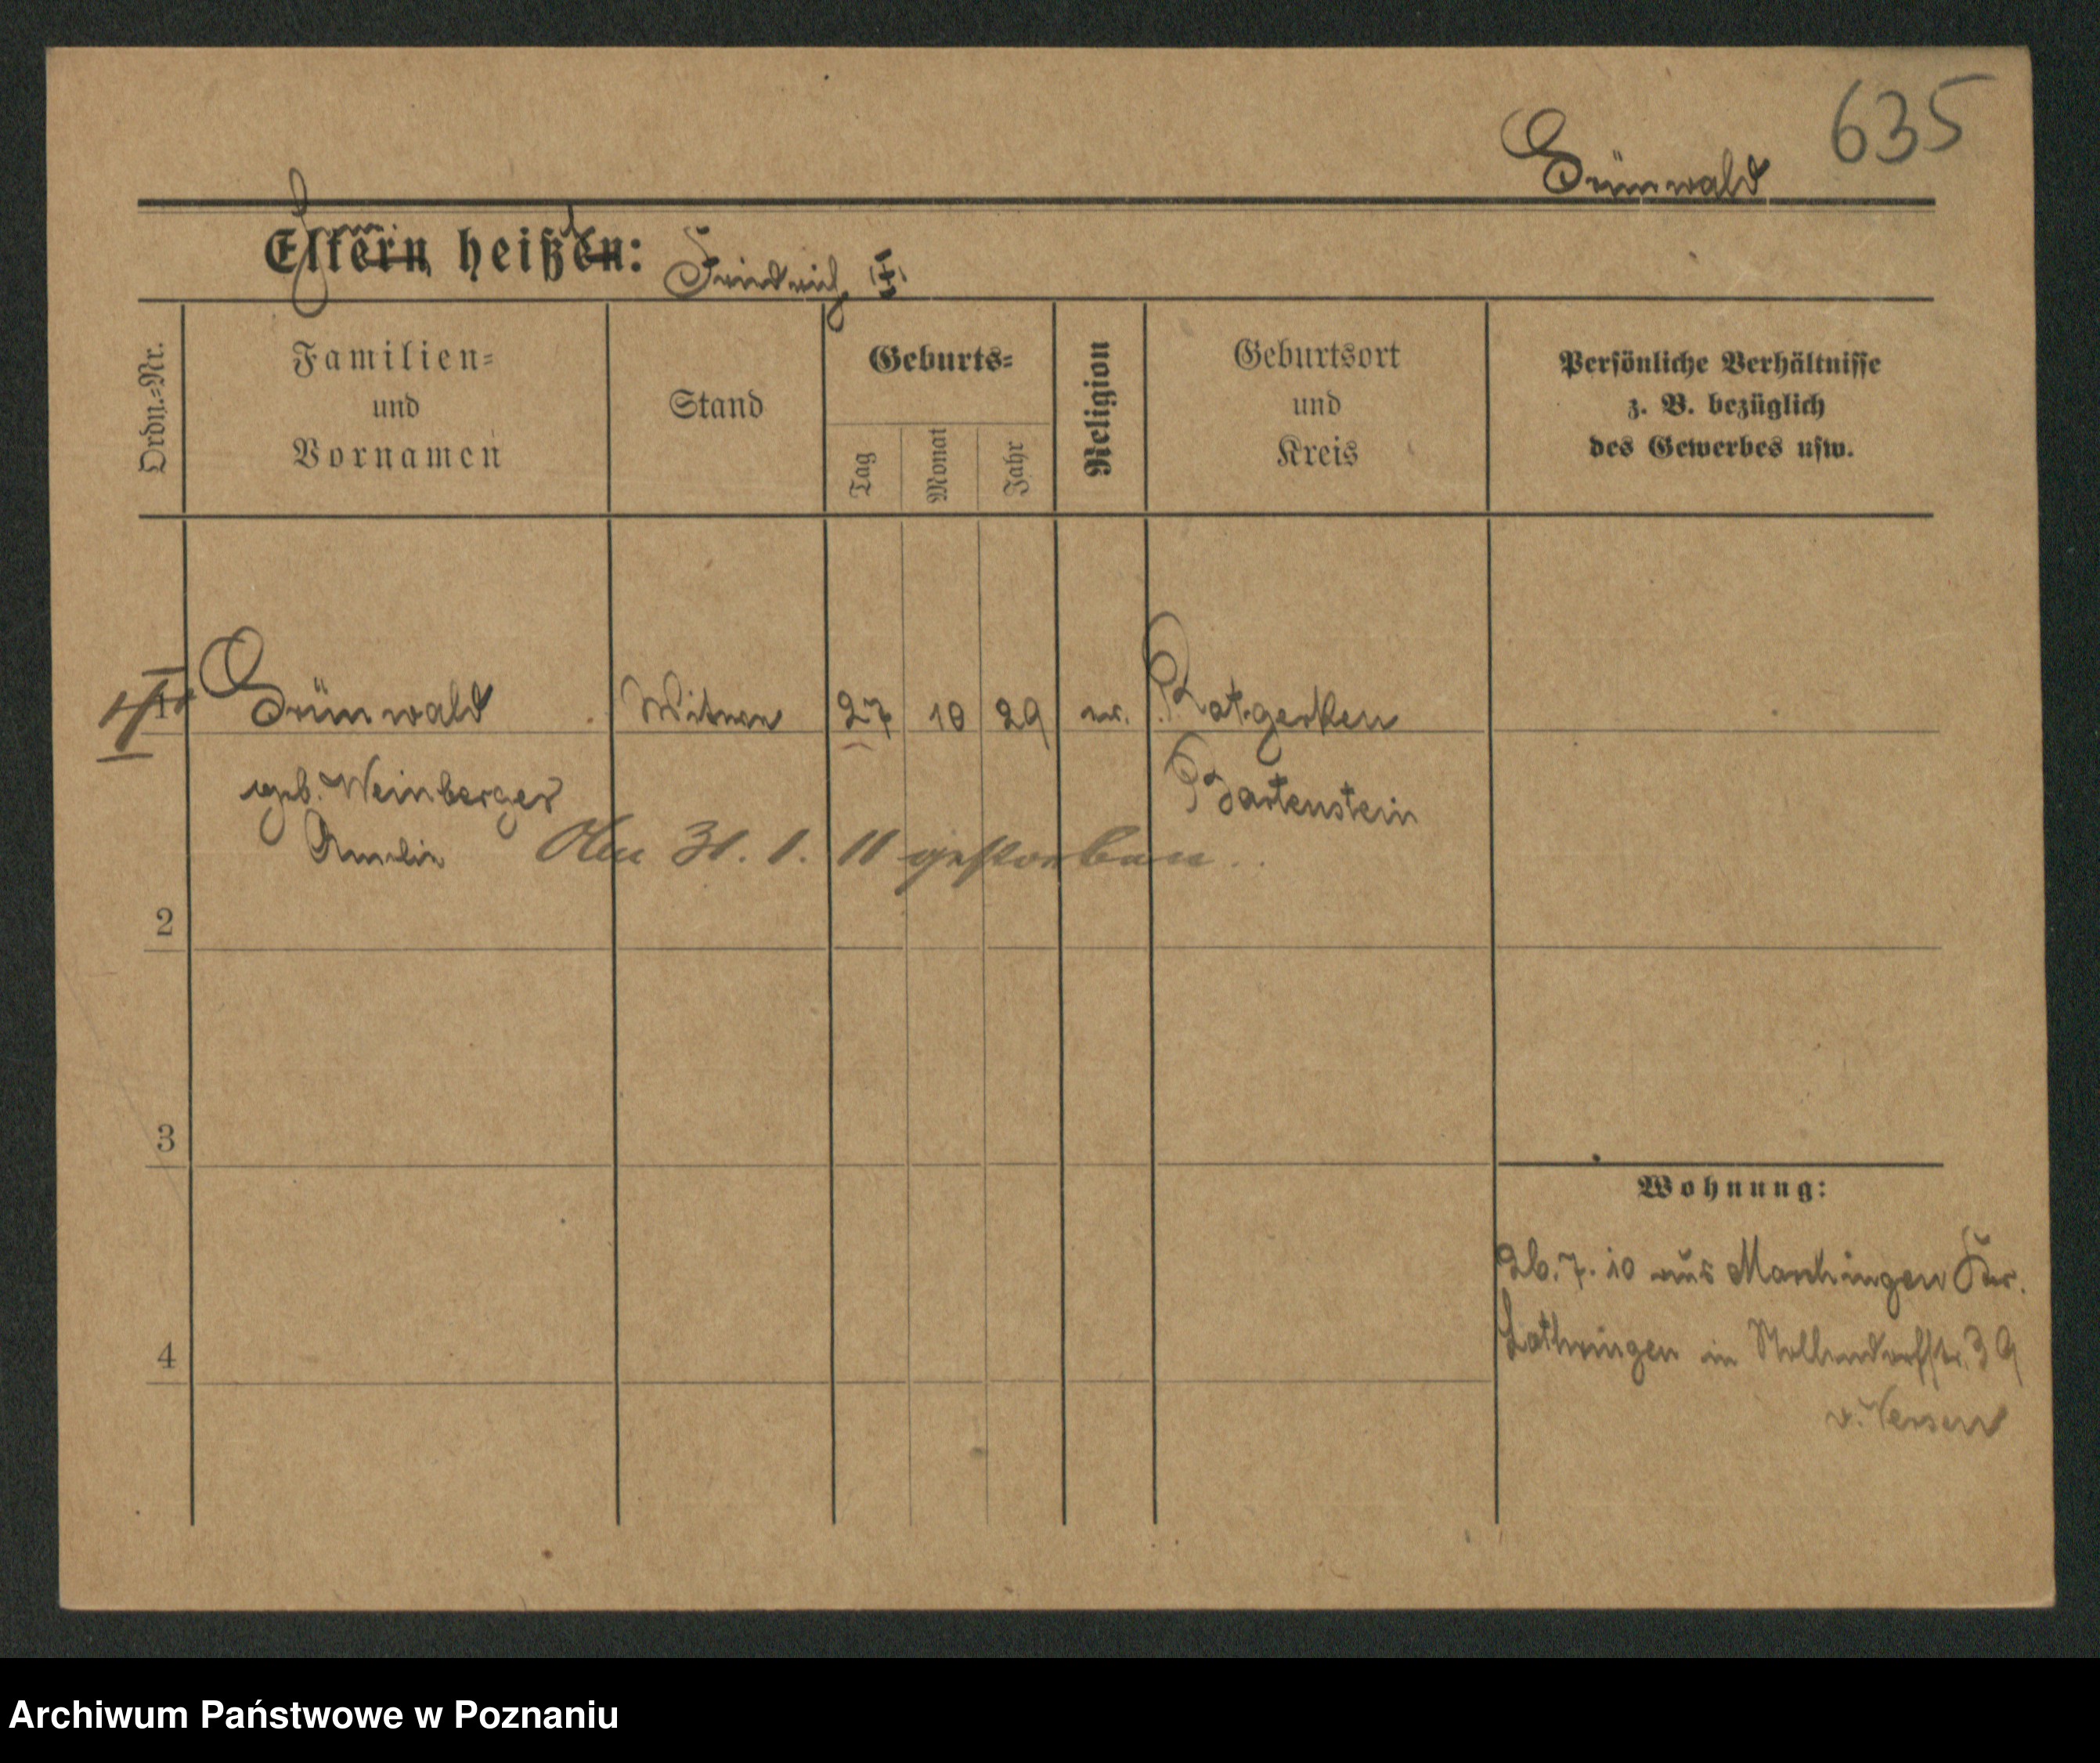 635
Grünwald
Eltern heißen: Friedrich
Ordn.=Nr.
Familien=
und
Vornamen
Stand
Geburts=
Tag
Monat
Jahr
Religion
Geburtsort
und
Kreis
Persönliche Verhältnisse
z. B. bezüglich
des Gewerbes usw.
1 Grünwald Witwe 27 10 29 ev. Rotgerken
geb. Weinberger Bartenstein
Amalie Am 31. 1. 11 gestorben.
2
3
Wohnung:
26. 7. 10 aus Morchingen Kr.
4
Lothringen in Nollendorfstr. 39
v. Versen
Archiwum Państwowe w Poznaniu